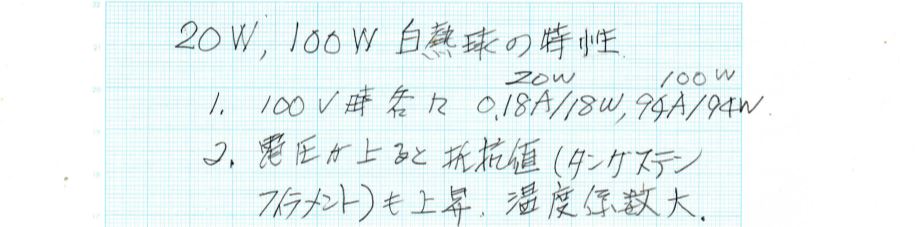 20W, 100W 白熱球の特性
20W 100W
1. 100V時各々 0.18A/18W, 94A/94W
2. 電圧が上ると抵抗値(タングステン
フィラメント)も上昇. 温度係数大.